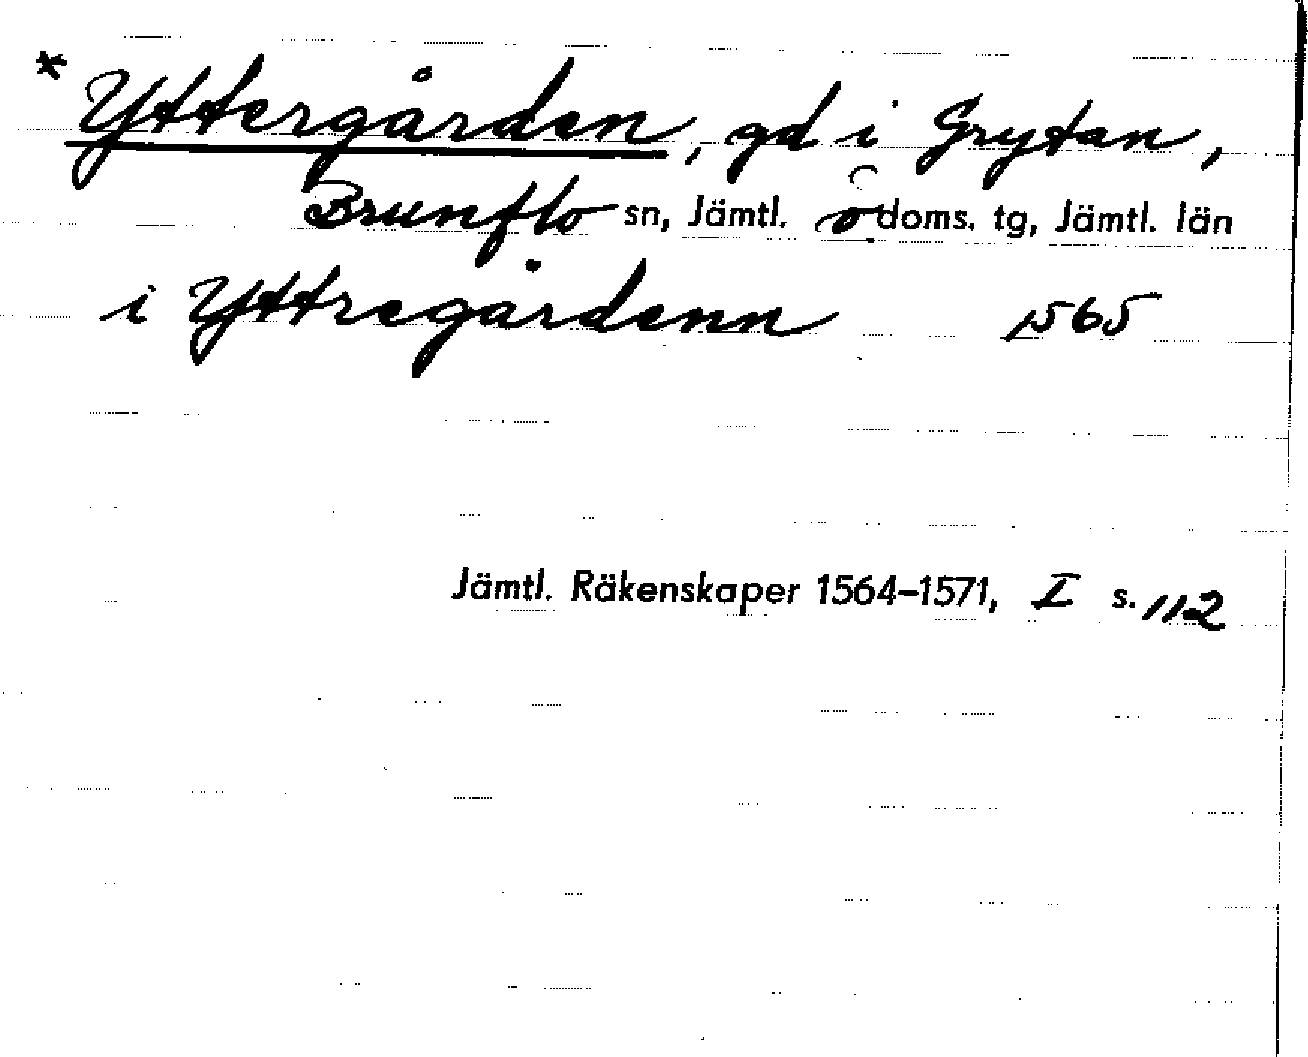 * Yttergården, gd i Grytan,
Brunflo sn, Jämtl. ö doms. tg, Jämtl. län
i Yttregårdenn 1565
Jämtl. Räkenskaper 1564–1571, I s. 112